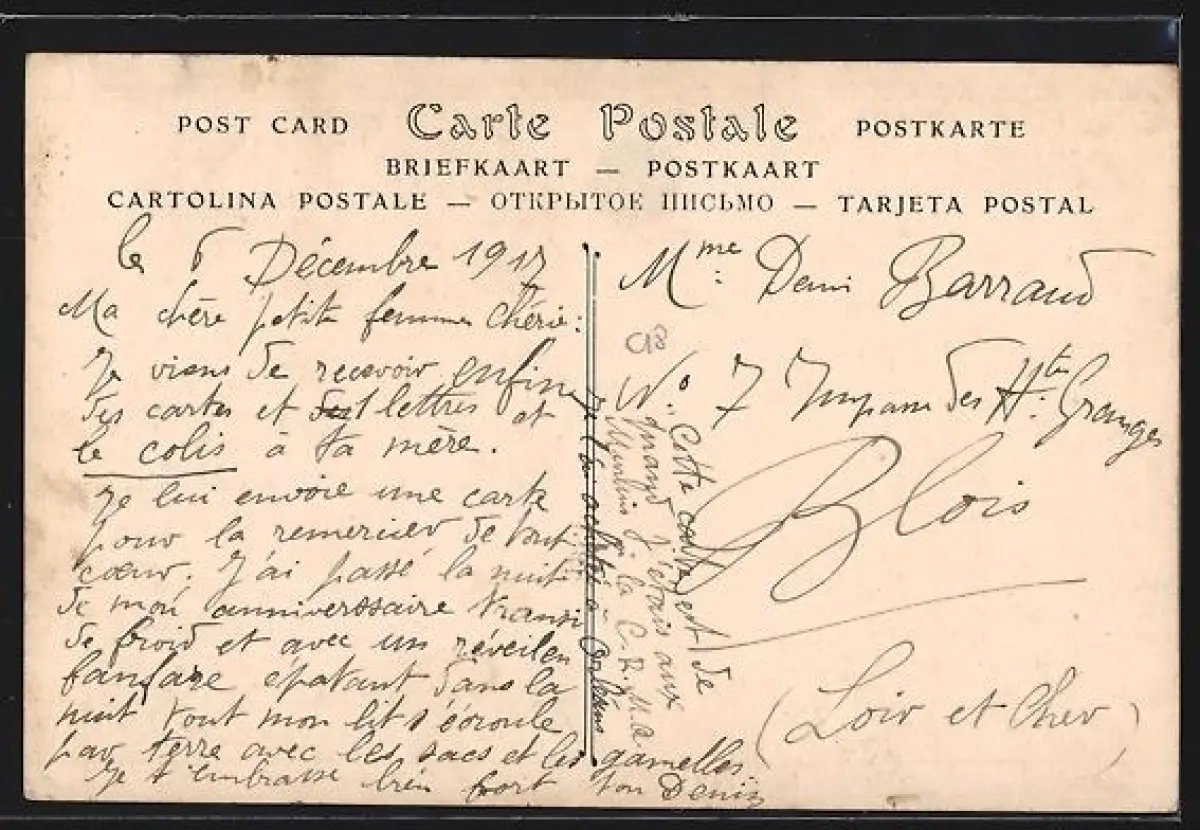 POST CARD Carte Postale POSTKARTE
BRIEFKAART — POSTKAART
CARTOLINA POSTALE — ОТКРЫТОЕ ПИСЬМО — TARJETA POSTAL
le 6 Décembre 1917
Ma chère petite femme chérie:
Je viens de recevoir enfin
des cartes et lettres et
le colis à ta mère.
Je lui envoie une carte
pour la remercier de tout
cœur. J'ai passé la nuit
de mon anniverssaire transi
de froid et avec un réveil en
fanfare épatant dans la
nuit tout mon lit s'écroule
par terre avec les sacs et les gamelles
Je t'embrasse bien fort ton Denis
Mme Denis Barraud
No 7 Impasse des Htes Granges
Blois
(Loir et Cher)
Cette carte est de
quand j'étais aux
à la C.R.